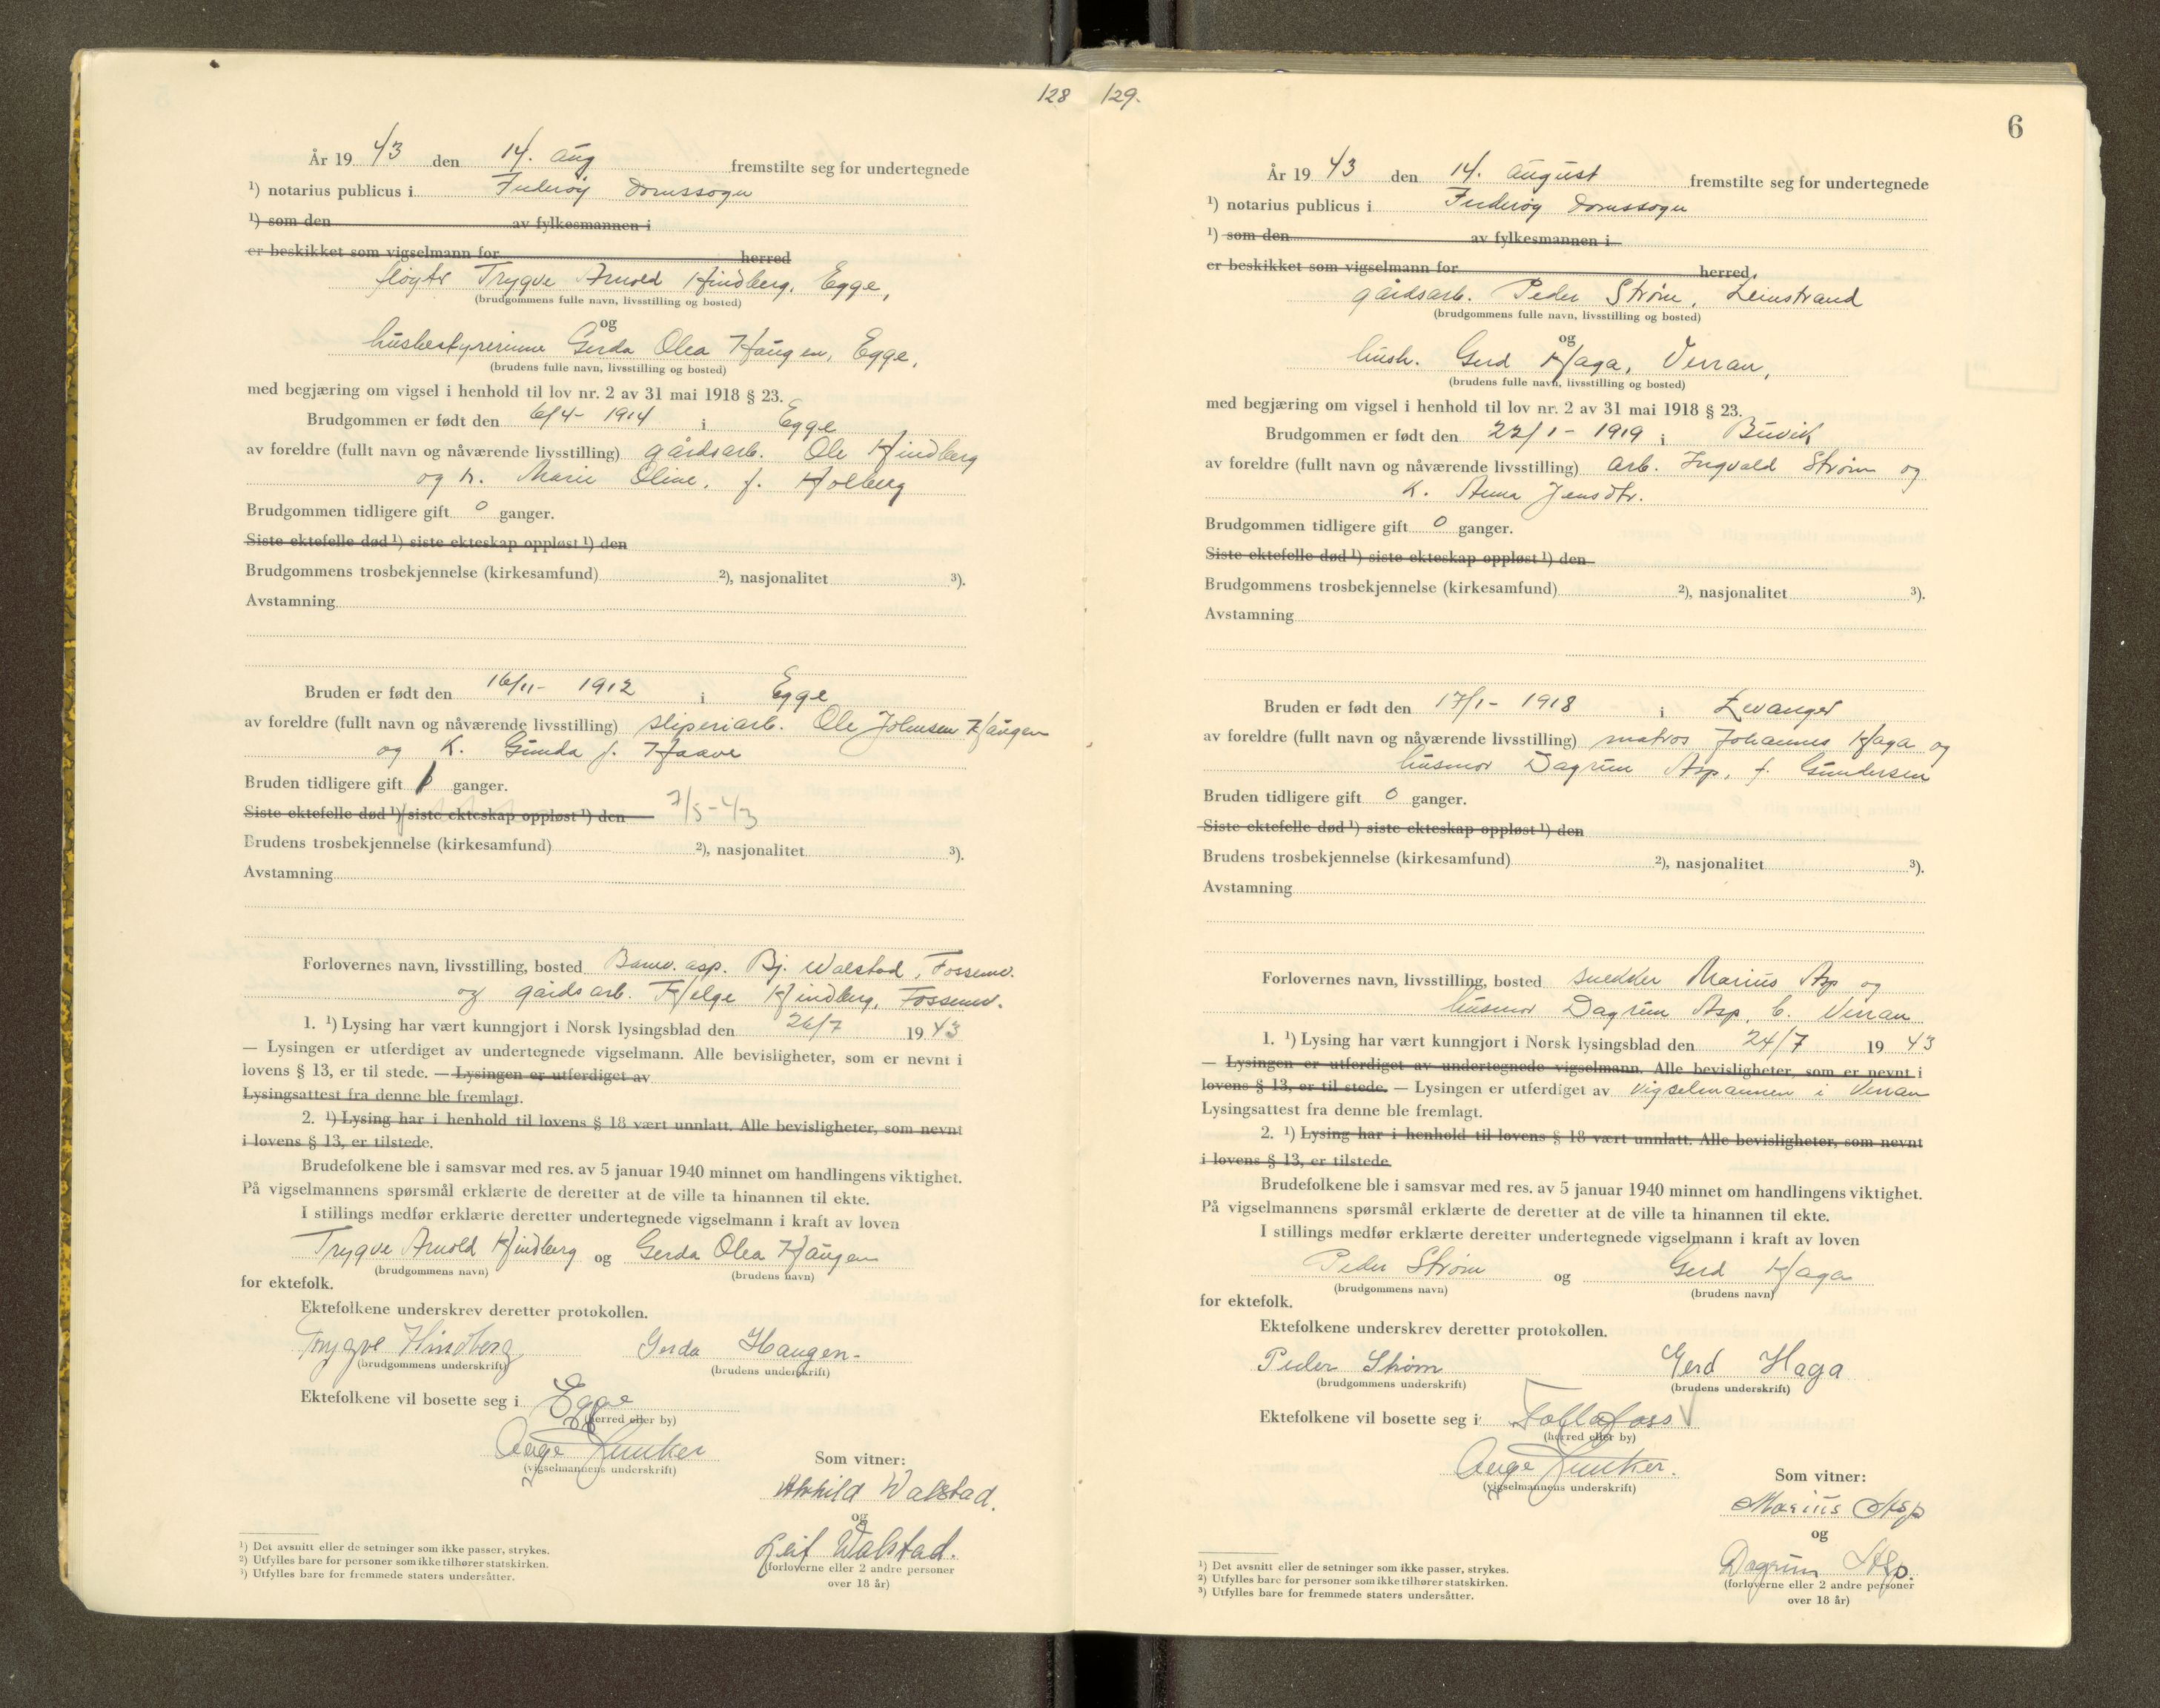 128
År 19 43 den 14. aug fremstilte seg for undertegnede
¹) notarius publicus i Inderøy domssogn
¹) som den av fylkesmannen i
er beskikket som vigselmann for herred
fløytr Trygve Arnold Hindberg, Egge,
(brudgommens fulle navn, livsstilling og bosted)
og
husbestyrerinne Gerda Olea Haugen, Egge,
(brudens fulle navn, livsstilling og bosted)
med begjæring om vigsel i henhold til lov nr. 2 av 31 mai 1918 § 23.
Brudgommen er født den 6/4- 1914 i Egge
av foreldre (fullt navn og nåværende livsstilling) gårdsarb. Ole Hindberg
og h. Marie Oline, f. Holberg
Brudgommen tidligere gift 0 ganger.
Siste ektefelle død ¹) siste ekteskap oppløst ¹) den
Brudgommens trosbekjennelse (kirkesamfund) ²), nasjonalitet ³).
Avstamning
Bruden er født den 16/11- 1912 i Egge
av foreldre (fullt navn og nåværende livsstilling) sliperiarb. Ole Johnsen Haugen
og k. Gunda f. Haave
Bruden tidligere gift ganger.
Siste ektefelle død ¹) siste ekteskap oppløst ¹) den 7/5-43
Brudens trosbekjennelse (kirkesamfund) ²), nasjonalitet ³).
Avstamning
Forlovernes navn, livsstilling, bosted Banev. asp. Bj. Walstad, Fossemv.
og gårdsarb. Helge Hindberg, Fossemv.
1. ¹) Lysing har vært kunngjort i Norsk lysingsblad den 26/7 1943
— Lysingen er utferdiget av undertegnede vigselmann. Alle bevisligheter, som er nevnt i
lovens § 13, er til stede. — Lysingen er utferdiget av
Lysingsattest fra denne ble fremlagt.
2. ¹) Lysing har i henhold til lovens § 18 vært unnlatt. Alle bevisligheter, som nevnt
i lovens § 13, er tilstede.
Brudefolkene ble i samsvar med res. av 5 januar 1940 minnet om handlingens viktighet.
På vigselmannens spørsmål erklærte de deretter at de ville ta hinannen til ekte.
I stillings medfør erklærte deretter undertegnede vigselmann i kraft av loven
Trygve Arnold Hindberg og Gerda Olea Haugen
(brudgommens navn) (brudens navn)
for ektefolk.
Ektefolkene underskrev deretter protokollen.
Trygve Hindberg Gerda Haugen-
(brudgommens underskrift) (brudens underskrift)
Ektefolkene vil bosette seg i Egge
(herred eller by)
Aage Junker
(vigselmannens underskrift)
Som vitner:
Walstad.
og
Leif Walstad.
(forloverne eller 2 andre personer
over 18 år)
¹) Det avsnitt eller de setninger som ikke passer, strykes.
²) Utfylles bare for personer som ikke tilhører statskirken.
³) Utfylles bare for fremmede staters undersåtter.
129.
6
År 19 43 den 14. august fremstilte seg for undertegnede
¹) notarius publicus i Inderøy domssogn
¹) som den av fylkesmannen i
er beskikket som vigselmann for herred.
gårdsarb. Peder Strøm, Leinstrand
(brudgommens fulle navn, livsstilling og bosted)
og
hush. Gerd Haga, Verran,
(brudens fulle navn, livsstilling og bosted)
med begjæring om vigsel i henhold til lov nr. 2 av 31 mai 1918 § 23.
Brudgommen er født den 22/1- 1919 i Buvik
av foreldre (fullt navn og nåværende livsstilling) arb. Ingvald Strøm og
k. Anna Jensdtr.
Brudgommen tidligere gift 0 ganger.
Siste ektefelle død ¹) siste ekteskap oppløst ¹) den
Brudgommens trosbekjennelse (kirkesamfund) ²), nasjonalitet ³).
Avstamning
Bruden er født den 17/1- 1918 i Levanger
av foreldre (fullt navn og nåværende livsstilling) matros Johannes Haga og
husmor Dagrun Asp, f. Gundersen
Bruden tidligere gift 0 ganger.
Siste ektefelle død ¹) siste ekteskap oppløst ¹) den
Brudens trosbekjennelse (kirkesamfund) ²), nasjonalitet ³).
Avstamning
Forlovernes navn, livsstilling, bosted snekker Marius Asp og
husmor Dagrun Asp, b. Verran
1. ¹) Lysing har vært kunngjort i Norsk lysingsblad den 24/7 19 43
— Lysingen er utferdiget av undertegnede vigselmann. Alle bevisligheter, som er nevnt i
lovens § 13, er til stede. — Lysingen er utferdiget av vigselmannen i Verran
Lysingsattest fra denne ble fremlagt.
2. ¹) Lysing har i henhold til lovens § 18 vært unnlatt. Alle bevisligheter, som nevnt
i lovens § 13, er tilstede
Brudefolkene ble i samsvar med res. av 5 januar 1940 minnet om handlingens viktighet.
På vigselmannens spørsmål erklærte de deretter at de ville ta hinannen til ekte.
I stillings medfør erklærte deretter undertegnede vigselmann i kraft av loven
Peder Strøm og Gerd Haga
(brudgommens navn) (brudens navn)
for ektefolk.
Ektefolkene underskrev deretter protokollen.
Peder Strøm Gerd Haga
(brudgommens underskrift) (brudens underskrift)
Ektefolkene vil bosette seg i Follafoss
(herred eller by)
Aage Junker.
(vigselmannens underskrift)
Som vitner:
Marius Asp
og
Dagrun Asp.
(forloverne eller 2 andre personer
over 18 år)
¹) Det avsnitt eller de setninger som ikke passer, strykes.
²) Utfylles bare for personer som ikke tilhører statskirken.
³) Utfylles bare for fremmede staters undersåtter.